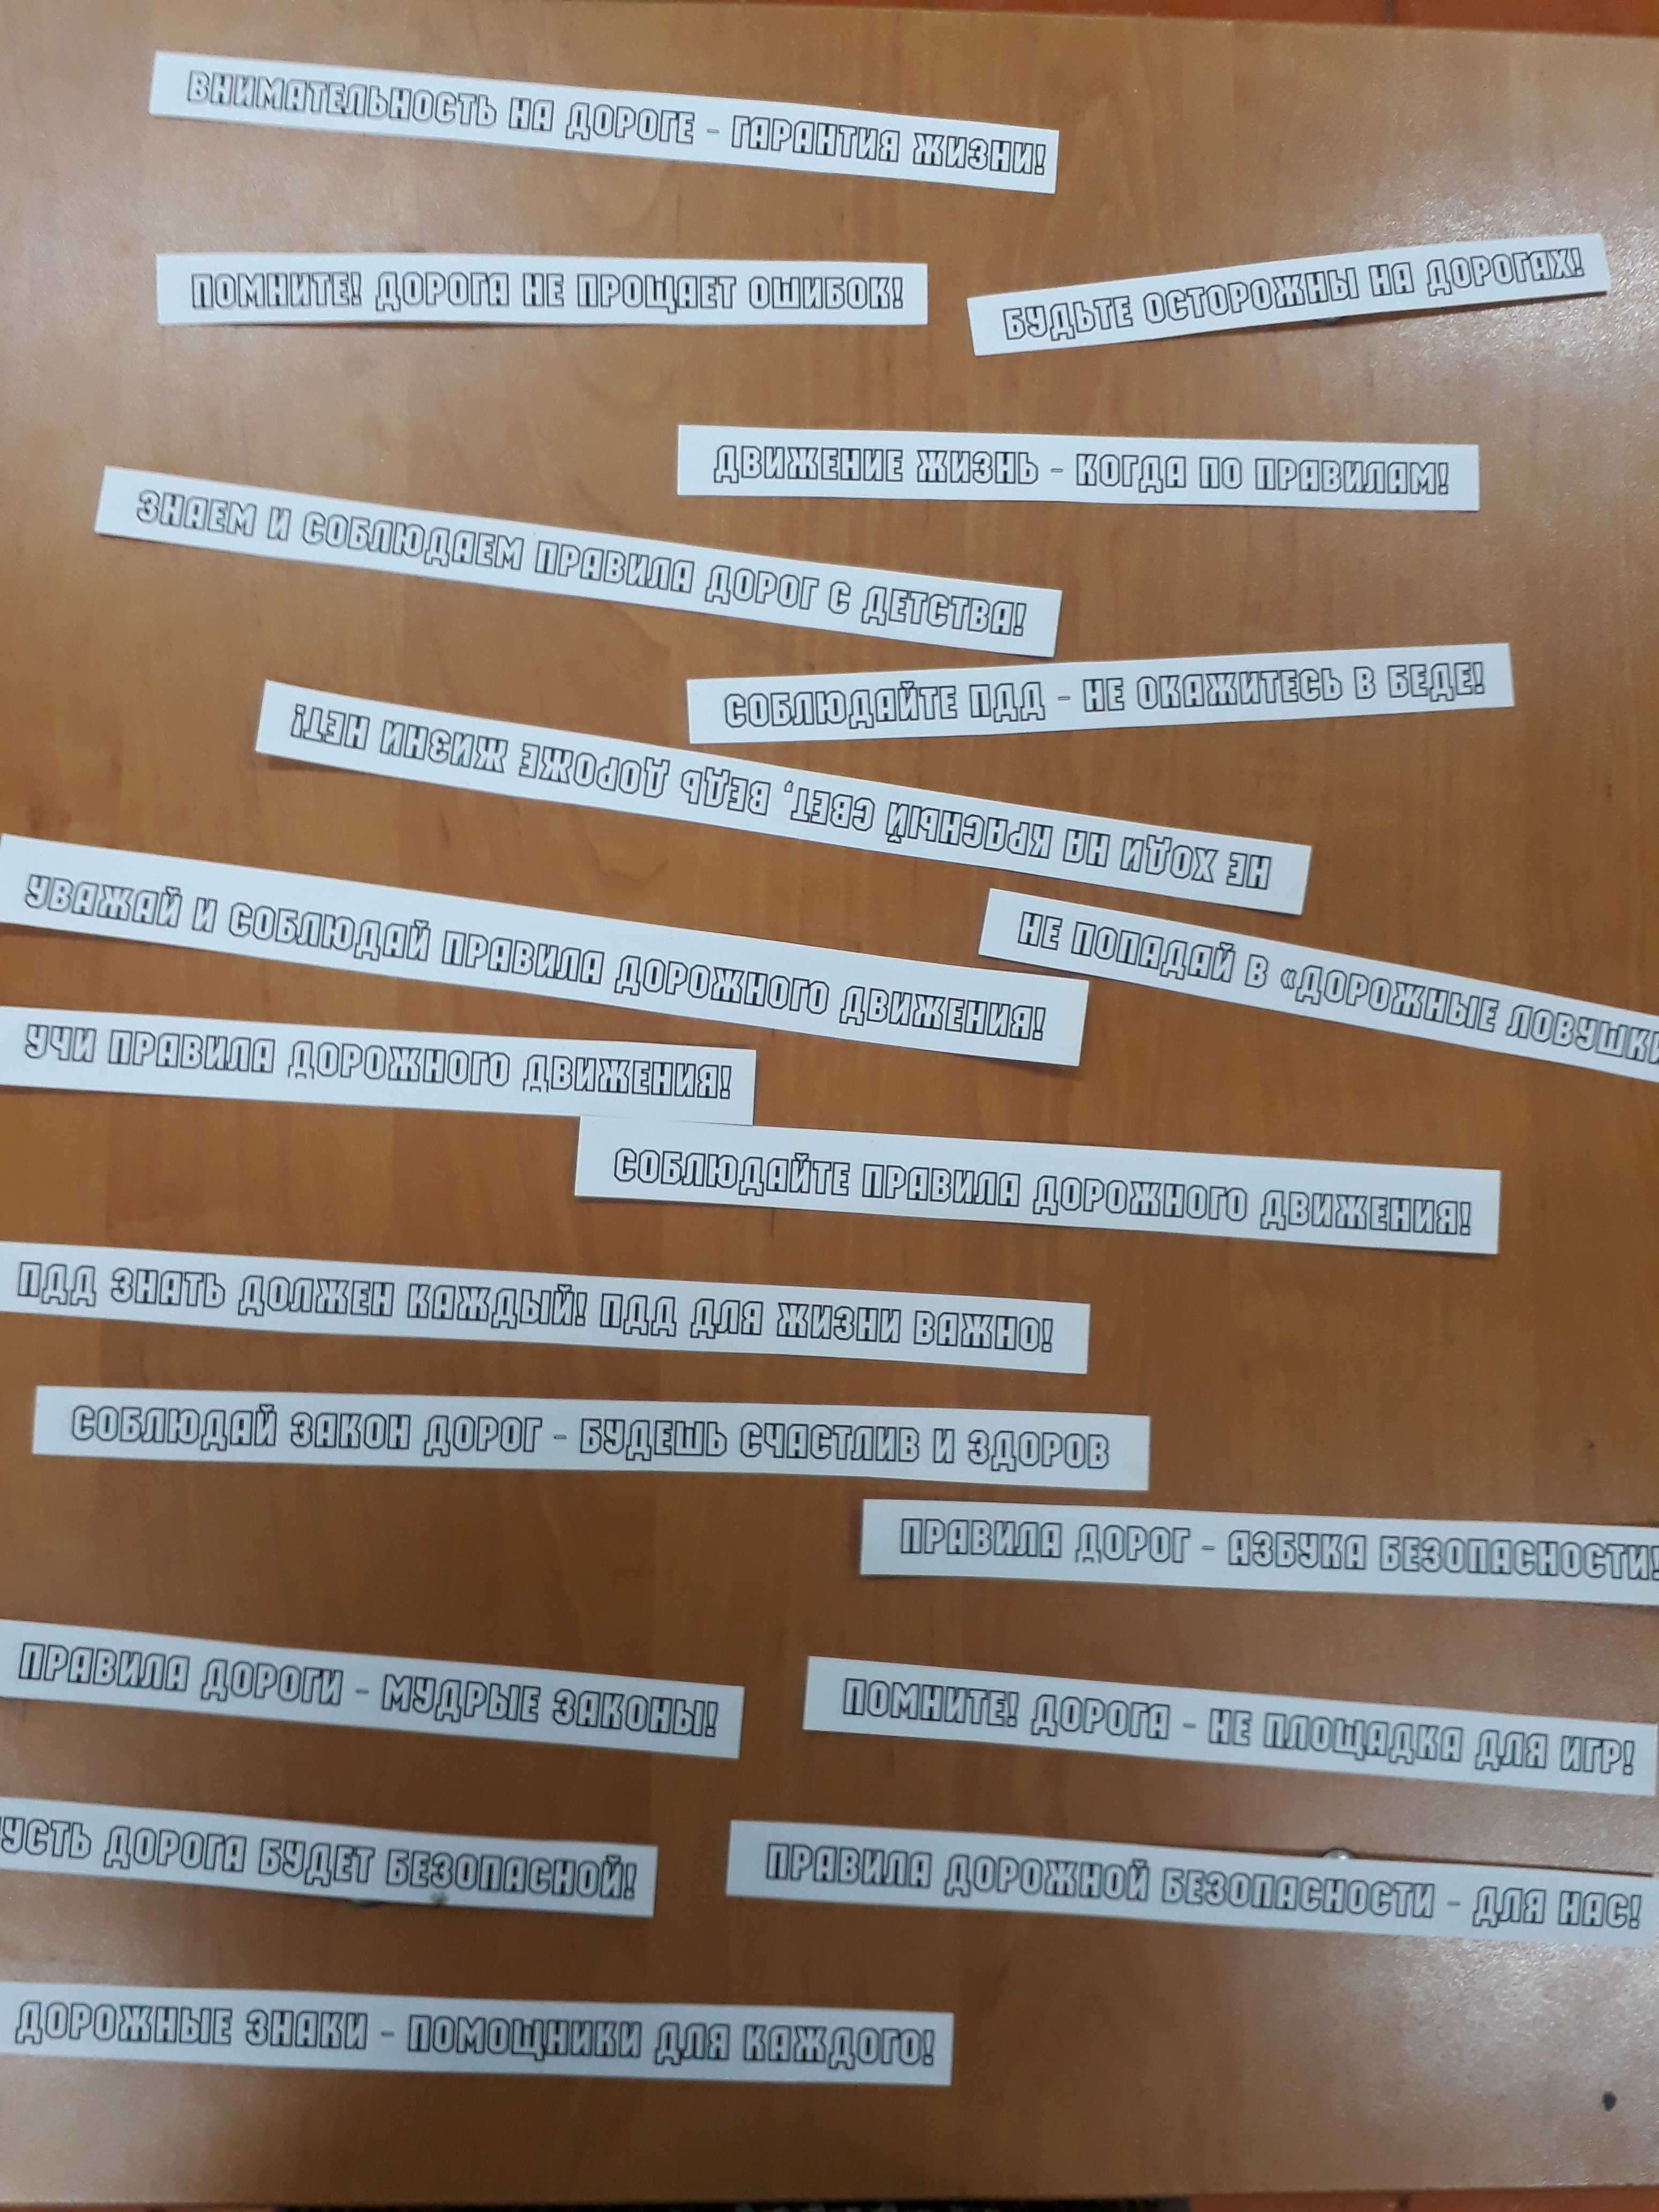 ВНИМАТЕЛЬНОСТЬ НА ДОРОГЕ - ГАРАНТИЯ ЖИЗНИ!
ПОМНИТЕ! ДОРОГА НЕ ПРОЩАЕТ ОШИБОК!
БУДЬТЕ ОСТОРОЖНЫ НА ДОРОГАХ!
ДВИЖЕНИЕ ЖИЗНЬ - КОГДА ПО ПРАВИЛАМ!
ЗНАЕМ И СОБЛЮДАЕМ ПРАВИЛА ДОРОГ С ДЕТСТВА!
СОБЛЮДАЙТЕ ПДД - НЕ ОКАЖИТЕСЬ В БЕДЕ!
НЕ ХОДИ НА КРАСНЫЙ СВЕТ, ВЕДЬ ДОРОЖЕ ЖИЗНИ НЕТ!
УВАЖАЙ И СОБЛЮДАЙ ПРАВИЛА ДОРОЖНОГО ДВИЖЕНИЯ!
НЕ ПОПАДАЙ В «ДОРОЖНЫЕ ЛОВУШКИ
УЧИ ПРАВИЛА ДОРОЖНОГО ДВИЖЕНИЯ!
СОБЛЮДАЙТЕ ПРАВИЛА ДОРОЖНОГО ДВИЖЕНИЯ!
ПДД ЗНАТЬ ДОЛЖЕН КАЖДЫЙ! ПДД ДЛЯ ЖИЗНИ ВАЖНО!
СОБЛЮДАЙ ЗАКОН ДОРОГ - БУДЕШЬ СЧАСТЛИВ И ЗДОРОВ
ПРАВИЛА ДОРОГ - АЗБУКА БЕЗОПАСНОСТИ!
ПРАВИЛА ДОРОГИ - МУДРЫЕ ЗАКОНЫ!
ПОМНИТЕ! ДОРОГА - НЕ ПЛОЩАДКА ДЛЯ ИГР!
УСТЬ ДОРОГА БУДЕТ БЕЗОПАСНОЙ!
ПРАВИЛА ДОРОЖНОЙ БЕЗОПАСНОСТИ - ДЛЯ НАС!
ДОРОЖНЫЕ ЗНАКИ - ПОМОЩНИКИ ДЛЯ КАЖДОГО!